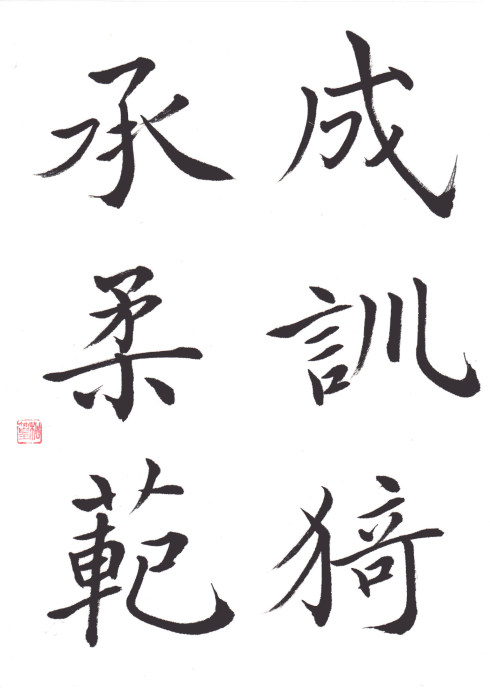 成訓猗
承柔範